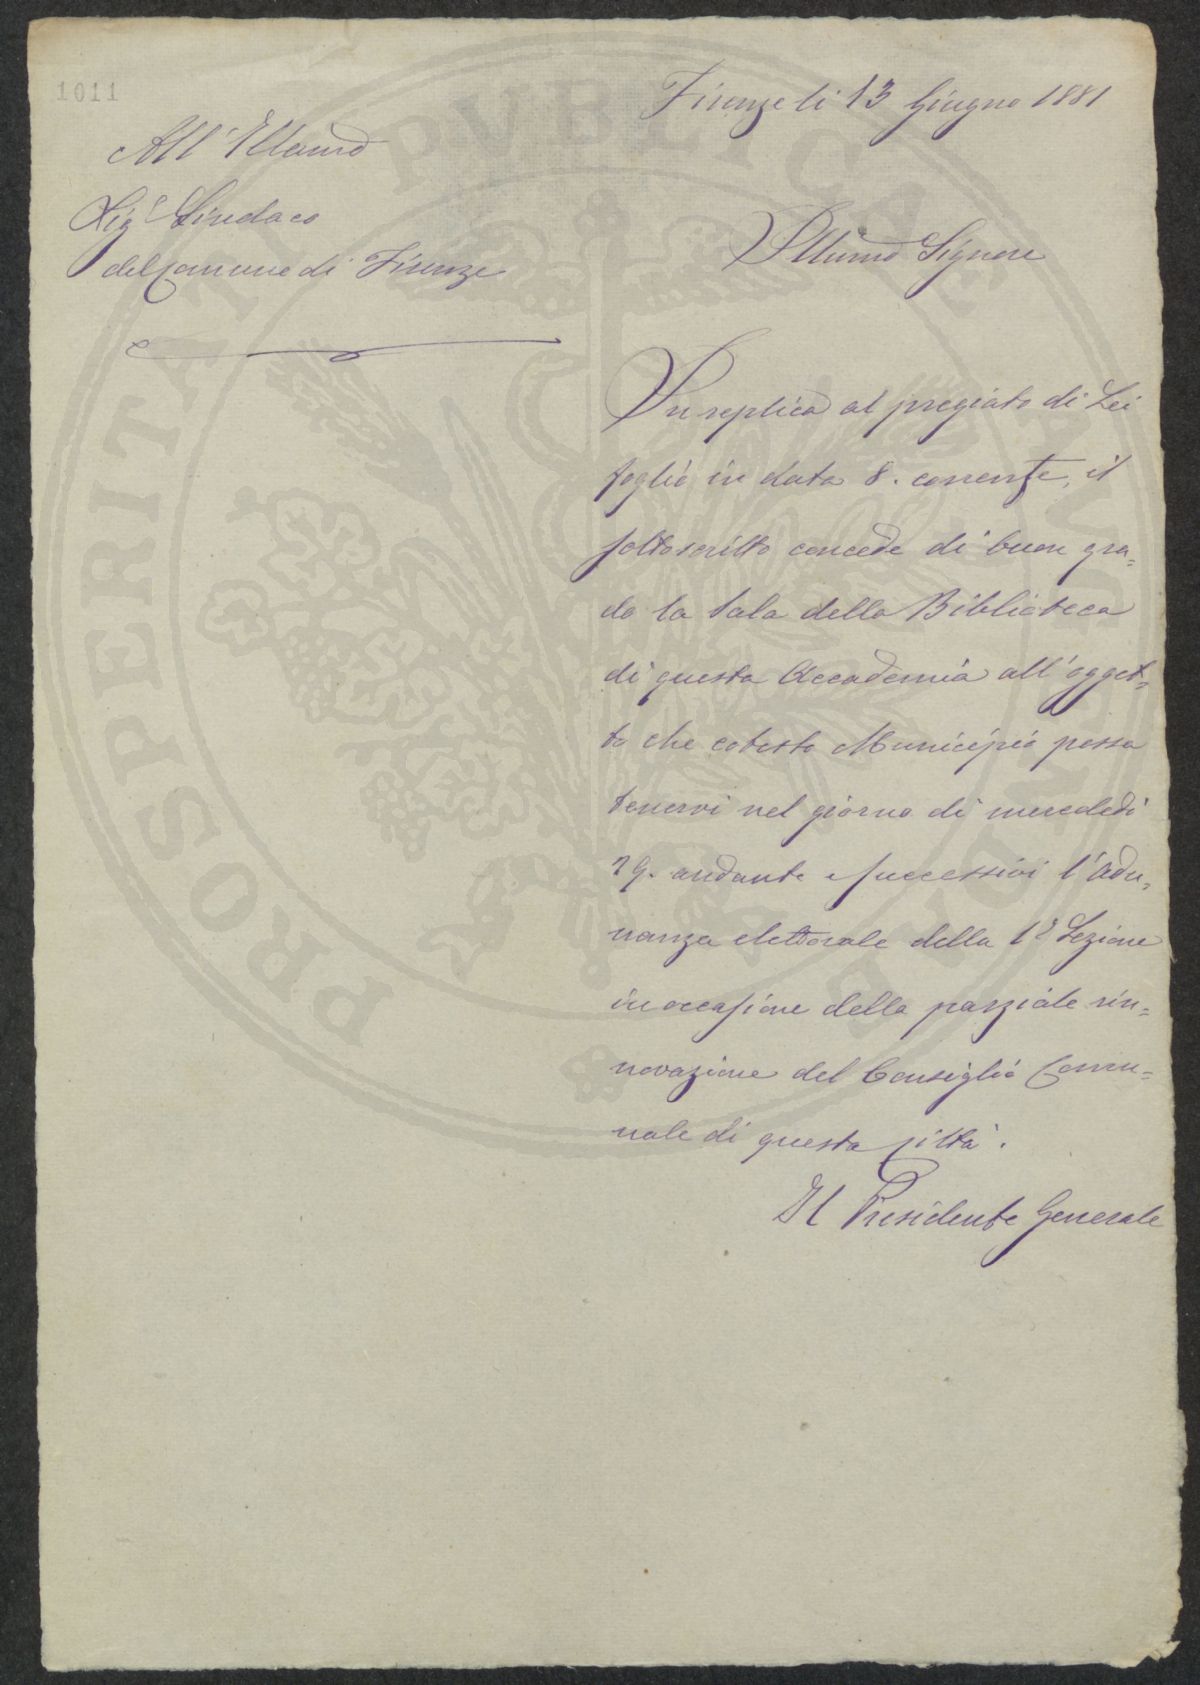 1011
Firenze li 13 Giugno 1881
All' Illumo
Sigr Sindaco
del Comune di Firenze
Illumo Signore
In replica al pregiato di Lei
foglio in data 8. corrente, il
sottoscritto concede di buon gra=
do la Sala della Biblioteca
di questa Accademia all'ogget=
to che codesto Municipio possa
tenervi nel giorno di mercoledì
29. andante e successivi l'adu=
nanza elettorale della 1a Sezione
in occasione della parziale rin=
novazione del Consiglio Comu=
nale di questa città.
Il Presidente Generale
PROSPERITATI PUBLICAE